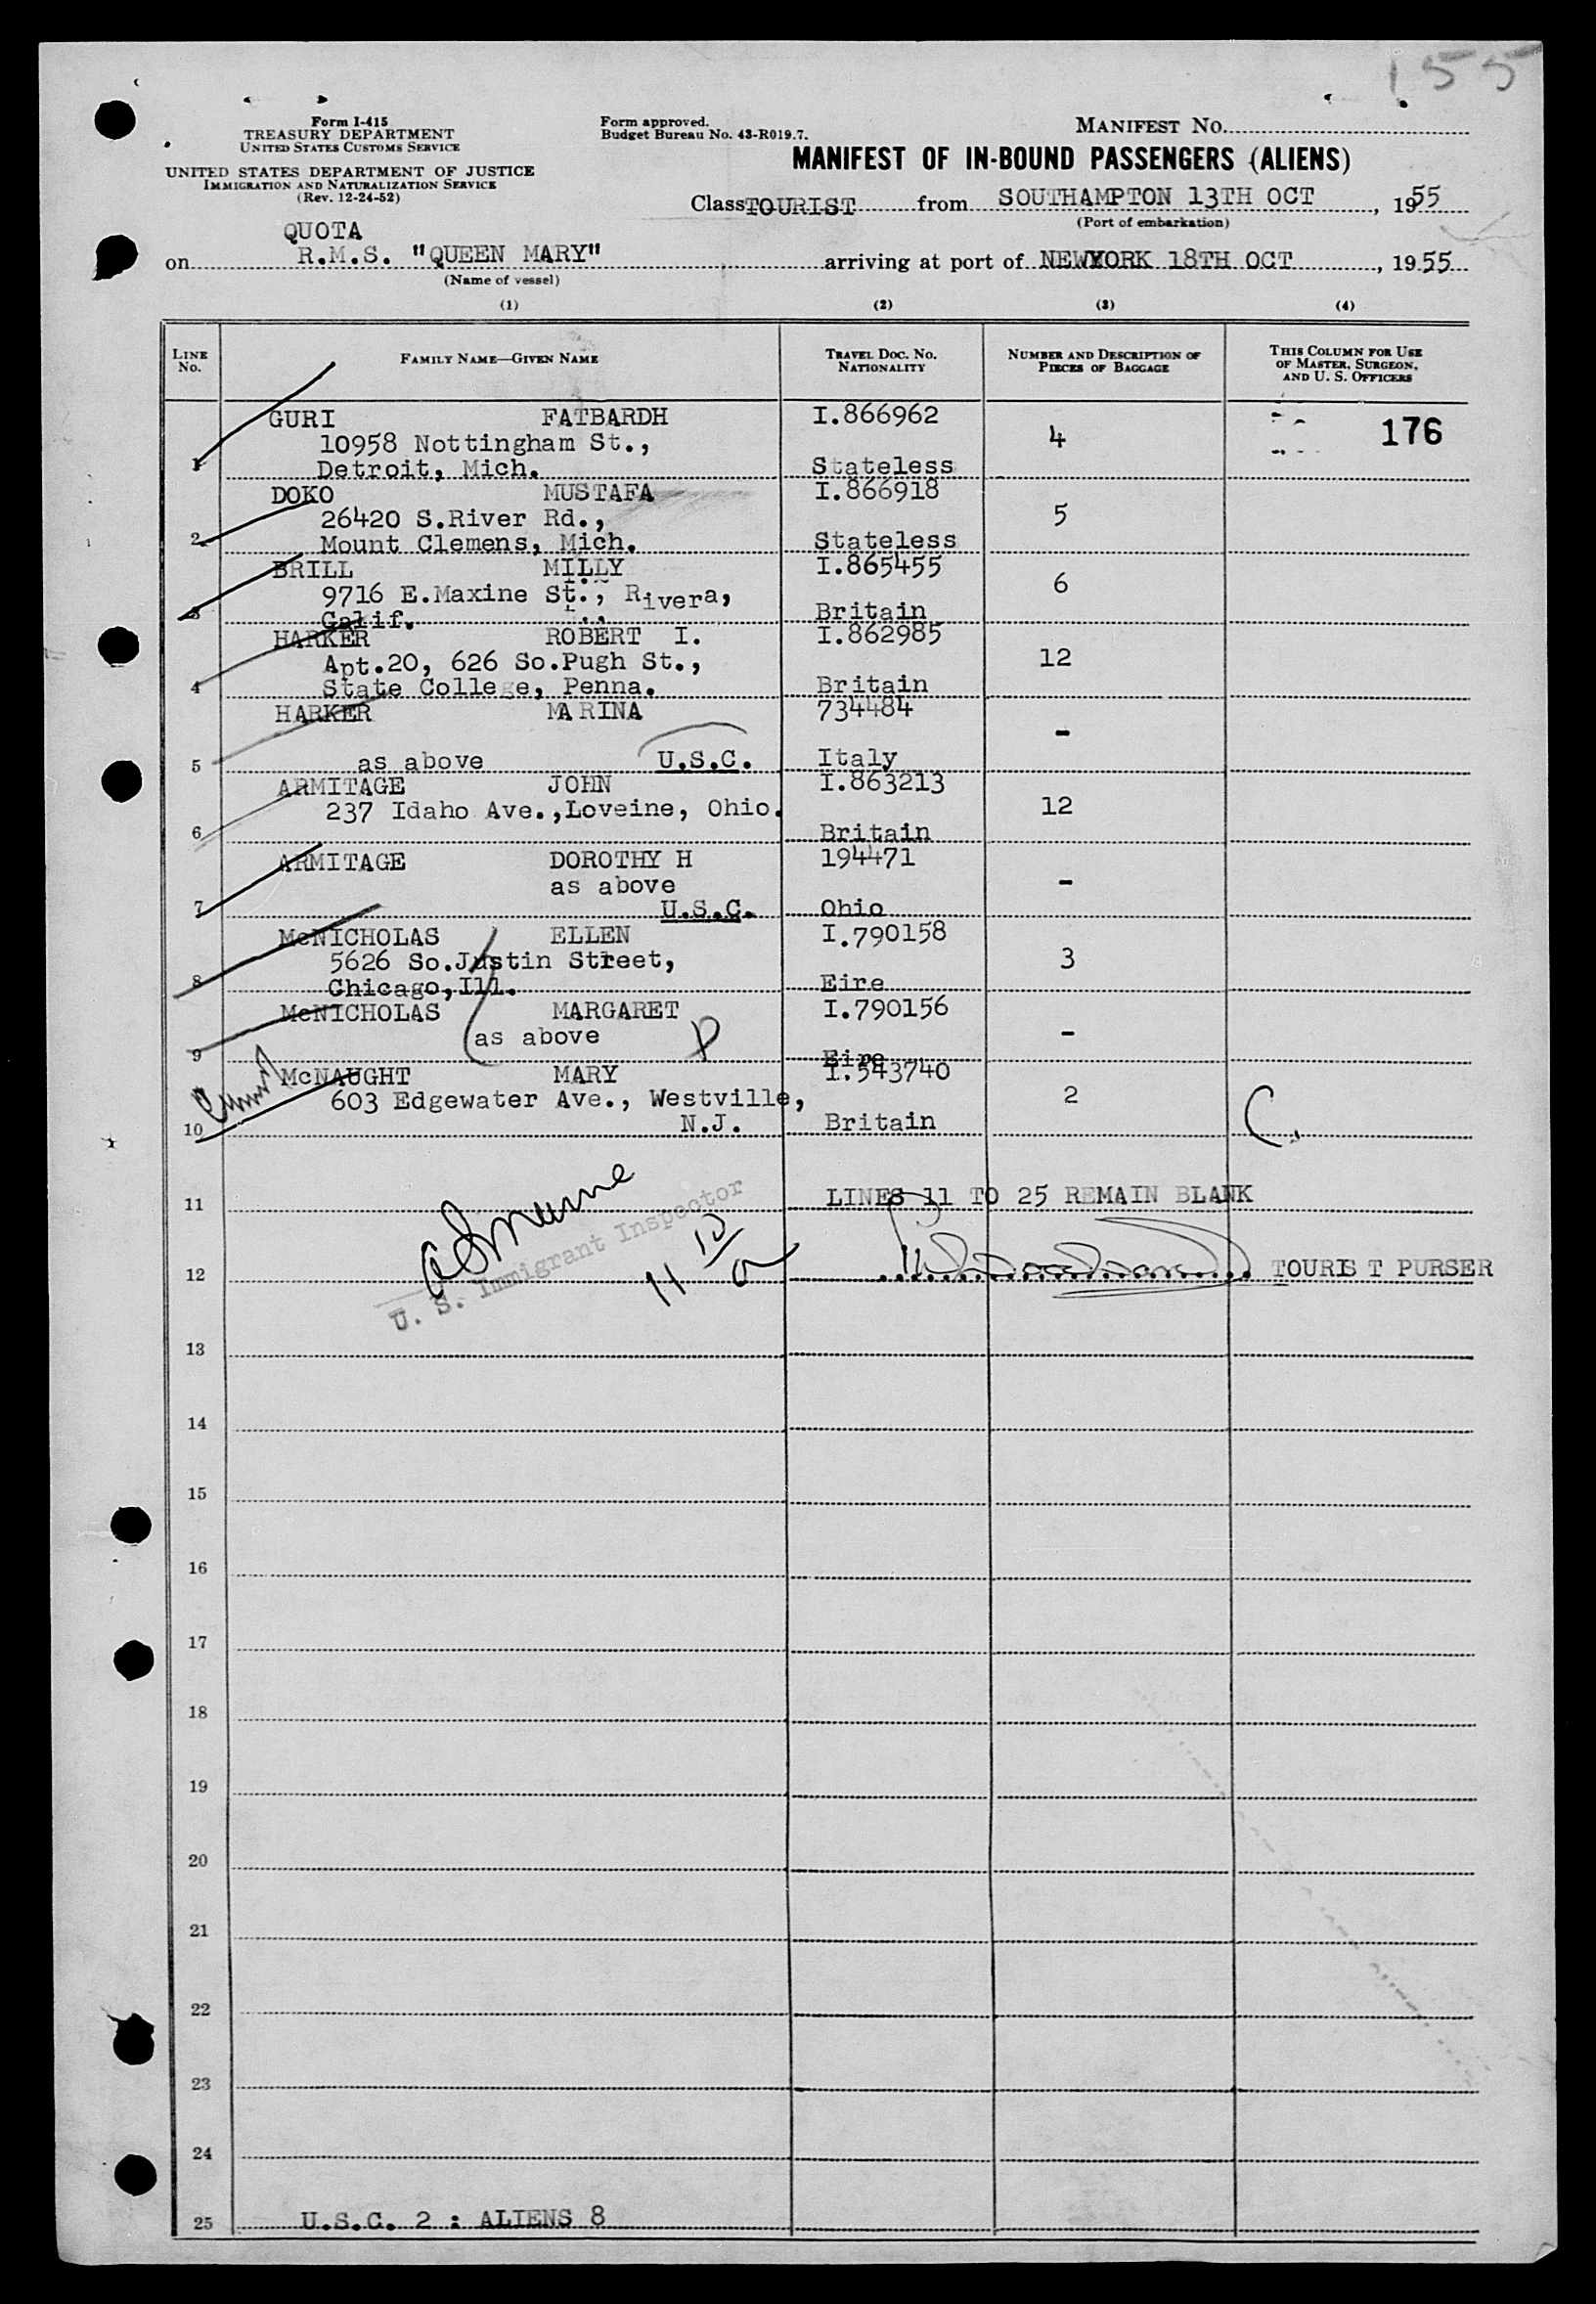 155
Form I-415
TREASURY DEPARTMENT
UNITED STATES CUSTOMS SERVICE
UNITED STATES DEPARTMENT OF JUSTICE
IMMIGRATION AND NATURALIZATION SERVICE
(Rev. 12-24-52)
Form approved.
Budget Bureau No. 43-R019.7.
MANIFEST NO.
MANIFEST OF IN-BOUND PASSENGERS (ALIENS)
Class TOURIST from SOUTHAMPTON 13TH OCT, 1955
(Port of embarkation)
QUOTA
on R.M.S. "QUEEN MARY" arriving at port of NEWYORK 18TH OCT, 1955
(Name of vessel)
(1) (2) (3) (4)
LINE NO. FAMILY NAME—GIVEN NAME TRAVEL DOC. NO. NATIONALITY NUMBER AND DESCRIPTION OF PIECES OF BAGGAGE THIS COLUMN FOR USE OF MASTER, SURGEON, AND U. S. OFFICERS
GURI FATBARDH I.866962
10958 Nottingham St., 4 176
1 Detroit, Mich. Stateless
DOKO MUSTAFA I.866918
26420 S.River Rd., 5
2 Mount Clemens, Mich. Stateless
BRILL MILLY I.865455
9716 E.Maxine St., Rivera, 6
3 Calif. Britain
HARKER ROBERT I. I.862985
Apt.20, 626 So.Pugh St., 12
4 State College, Penna. Britain
HARKER MARINA 734484
-
5 as above U.S.C. Italy
ARMITAGE JOHN I.863213
237 Idaho Ave.,Loveine, Ohio. 12
6 Britain
ARMITAGE DOROTHY H 194471
as above -
7 U.S.C. Ohio
McNICHOLAS ELLEN I.790158
5626 So.Justin Street, 3
8 Chicago,Ill. Eire
McNICHOLAS MARGARET I.790156
as above -
9 Eire
McNAUGHT MARY I.543740
603 Edgewater Ave., Westville, 2
10 N.J. Britain C
11 LINES 11 TO 25 REMAIN BLANK
U. S. Immigrant Inspector
12 TOURIST PURSER
13
14
15
16
17
18
19
20
21
22
23
24
25 U.S.C. 2 : ALIENS 8